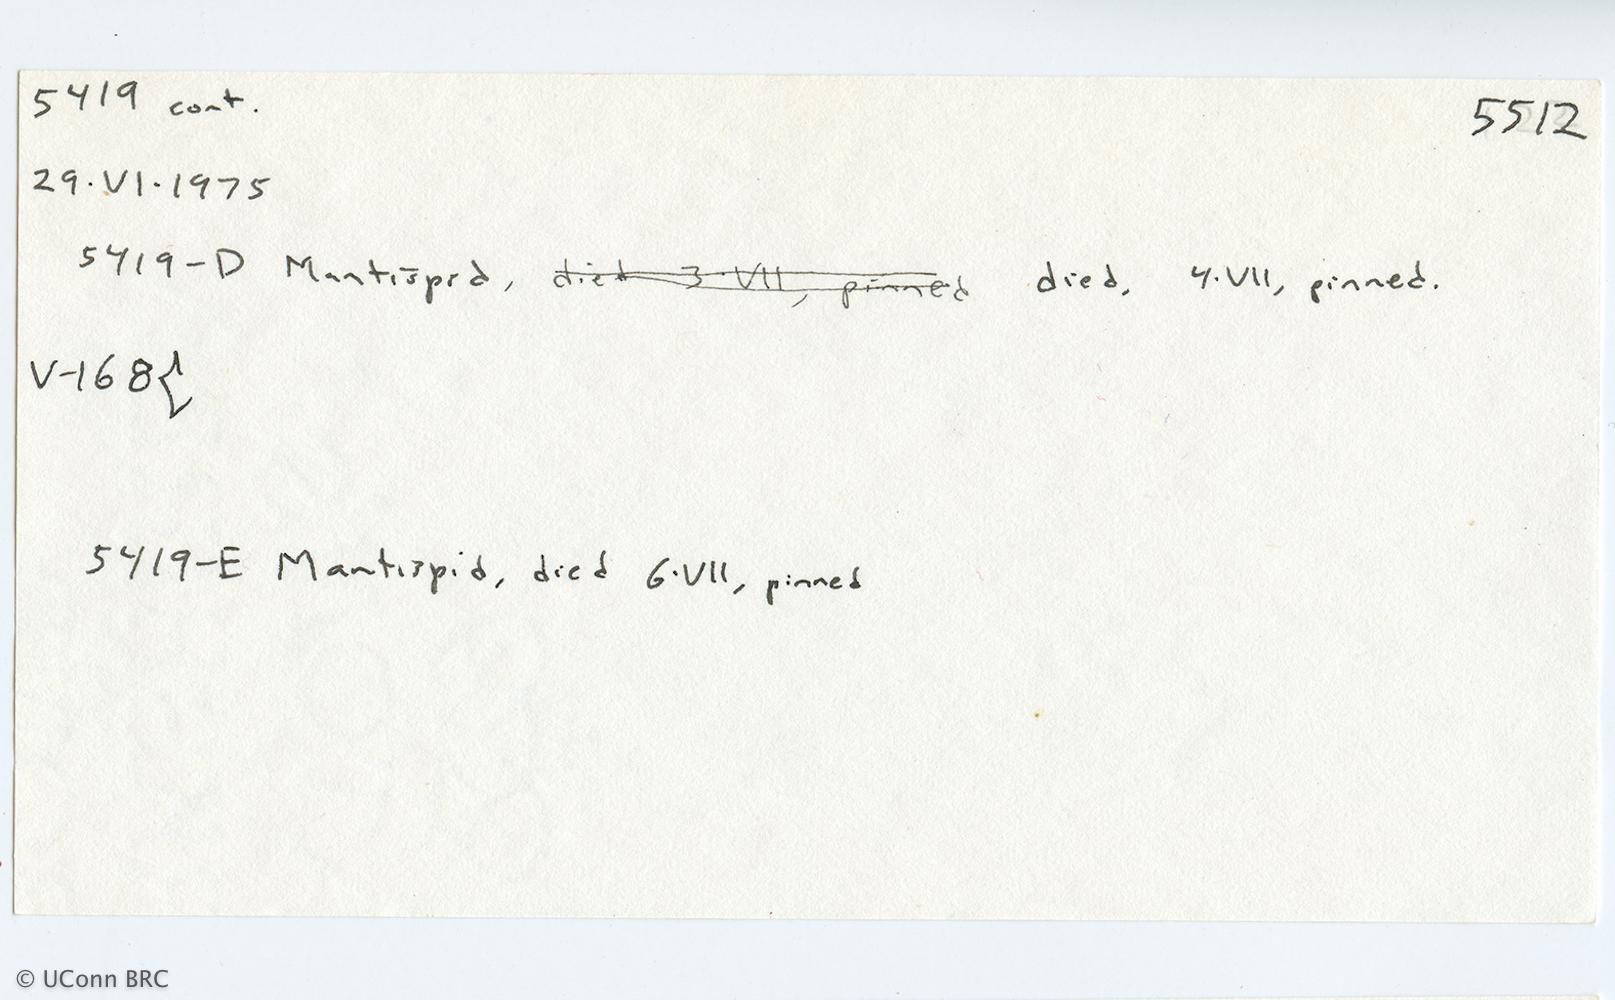 5419 cont. 5512
29·VI·1975
5419-D Mantispid, died 3·VII, pinned died, 4·VII, pinned.
V-168{
5419-E Mantispid, died 6·VII, pinned
© UConn BRC